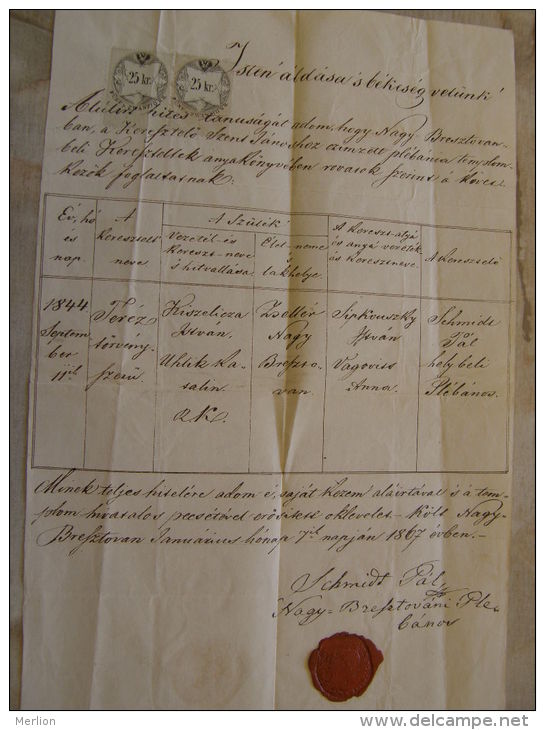 25 kr.
25 kr.
Isten áldása 's békiség velünk!
Alúlirt hites tanuságát adom, hogy Nagy-Bresztovan-
ban, a Keresztelő Szent Jánoshoz czimzett plébánia templom-
beli Kereszteltek anyakönyvében rovások szerint a követ-
kezők foglaltatnak:
Év, hó
és
nap.
A
Keresztelt
neve
A Szülők
Vezeték- és
Kereszt-neve
's hitvallása.
Élet-neme
és
lakhelye
A Kereszt-atyá
és anyá vezeték
és Keresztneve.
A Keresztelő
1844
Septem
ber
11ik
Teréz
törveny
szerü.
Kiszelicza
István.
Uhlik Ka-
talin.
R.K.
Zsellér
Nagy
Breszto-
van.
Sipkouszky
István
Vagovits
Anna.
Schmidt
Pál
helybeli
Plébános.
Minek teljes hitelére adom é, saját kezem aláirtával is a tem-
plom hivatalos pecsétével erősitett oklevelet. Költ Nagy-
Bresztovan Januárius hónap 7ik napján 1867 évben.
Schmidt Pál
Nagy-Bresztováni Plé-
bános
Merlion
www.delcampe.net